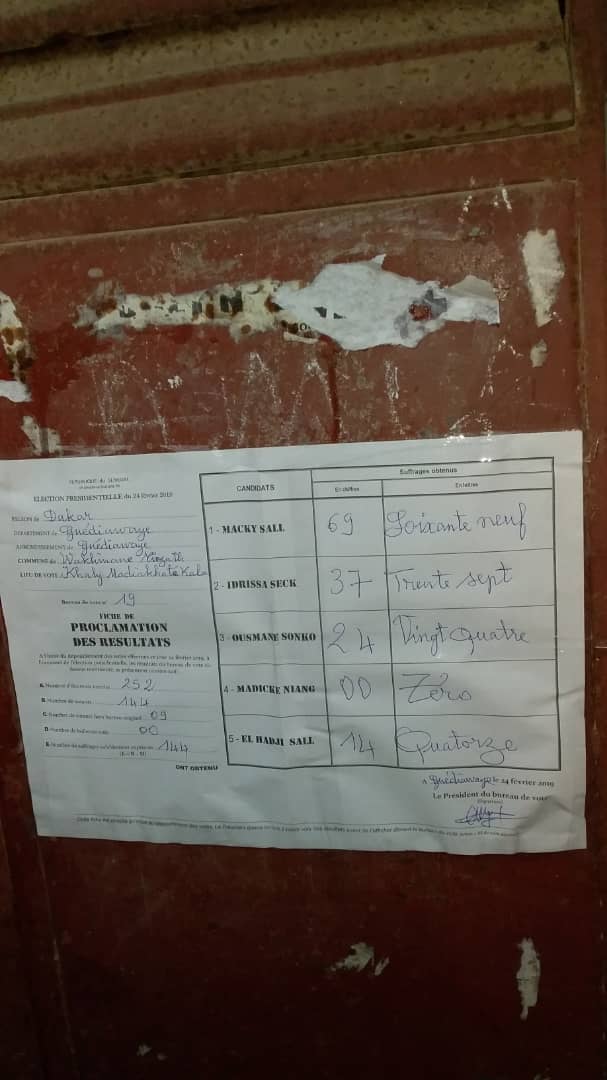 REPUBLIQUE DU SENEGAL
ELECTION PRESIDENTIELLE du 24 février 2019
REGION de Dakar
DEPARTEMENT de Guédiawaye
ARRONDISSEMENT de Guédiawaye
COMMUNE de Wakhinane Nimzatt
LIEU DE VOTE Khaly Madiakhaté Kala
Bureau de vote n° 19
FICHE DE
PROCLAMATION
DES RESULTATS
A. Nombre d'électeurs inscrits 252
B. Nombre de votants 144
C. Nombre de votants hors bureau originel 09
D. Nombre de bulletins nuls 00
E. Nombre de suffrages valablement exprimés 144
ONT OBTENU
CANDIDATS
Suffrages obtenus
En chiffres En lettres
1 - MACKY SALL 69 Soixante neuf
2 - IDRISSA SECK 37 Trente sept
3 - OUSMANE SONKO 24 Vingt Quatre
4 - MADICKE NIANG 00 Zéro
5 - EL HADJI SALL 14 Quatorze
A Guédiawaye le 24 février 2019
Le Président du bureau de vote
(Signature)